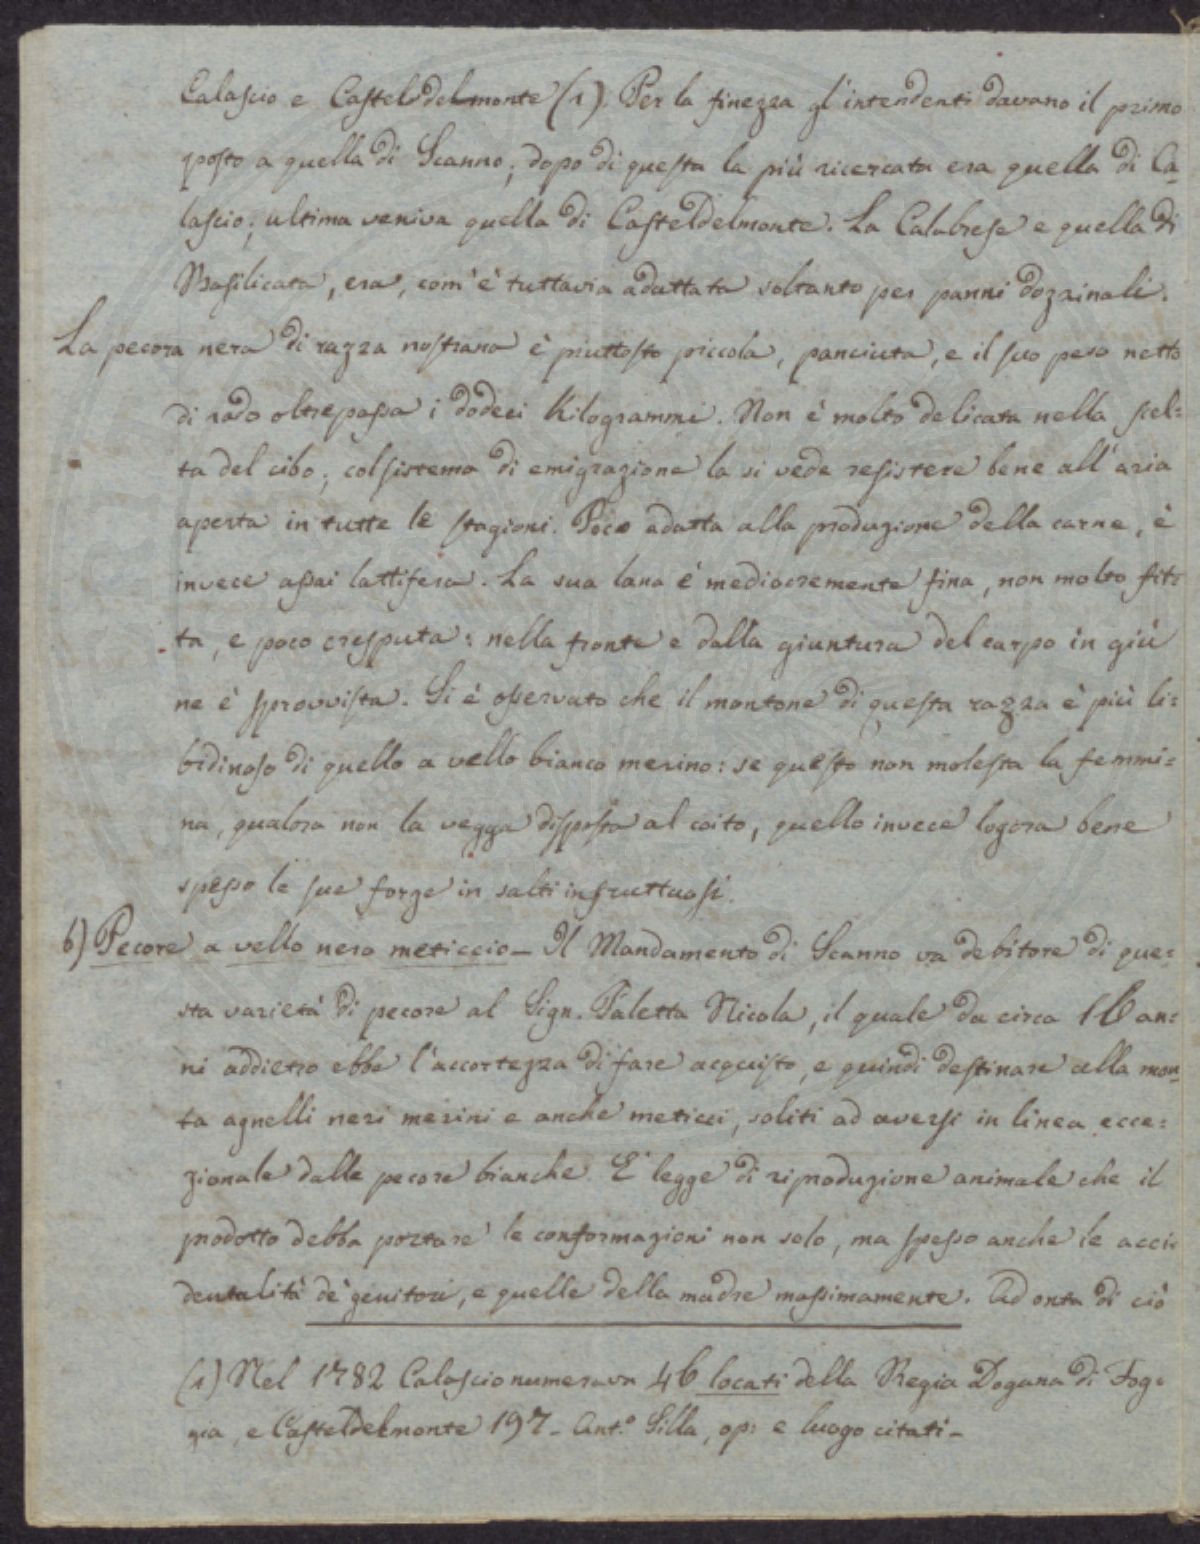 Calascio e Casteldelmonte (1). Per la finezza gl'intendenti davano il primo
posto a quella di Scanno; dopo di questa la più ricercata era quella di Ca-
lascio; ultima veniva quella di Casteldelmonte. La Calabrese e quella di
Basilicata, era, com'è tuttavia adattata soltanto per panni dozzinali.
La pecora nera di razza nostrana è piuttosto piccola, panciuta, e il suo peso netto
di rado oltrepassa i dodeci Kilogrammi. Non è molto delicata nella scel=
ta del cibo; col sistema di emigrazione la si vede resistere bene all'aria
aperta in tutte le stagioni. Poco adatta alla produzione della carne, è
invece assai lattifera. La sua lana è mediocremente fina, non molto fit=
ta, e poco cresputa: nella fronte e dalla giuntura del carpo in giù
ne è sprovvista. Si è osservato che il montone di questa razza è più li=
bidinoso di quello a vello bianco merino: se questo non molesta la femmi=
na, qualora non la vegga disposta al coito, quello invece logora bene
spesso le sue forze in salti infruttuosi.
6) Pecore a vello nero meticcio – Il Mandamento di Scanno va debitore di que=
sta varietà di pecore al Sign. Paletta Nicola, il quale da circa 16 an=
ni addietro ebbe l'accortezza di fare acquisto, e quindi destinare alla mon-
ta agnelli neri merini e anche meticci, soliti ad aversi in linea ecce=
zionale dalle pecore bianche. E' legge di riproduzione animale che il
prodotto debba portare le conformazioni non solo, ma spesso anche le acci=
dentalità de' genitori, e quelle della madre massimamente. Ad onta di ciò
(1) Nel 1782 Calascio numerava 46 locati della Regia Dogana di Fog=
gia, e Casteldelmonte 197 – Ant.º Silla, op: e luogo citati –